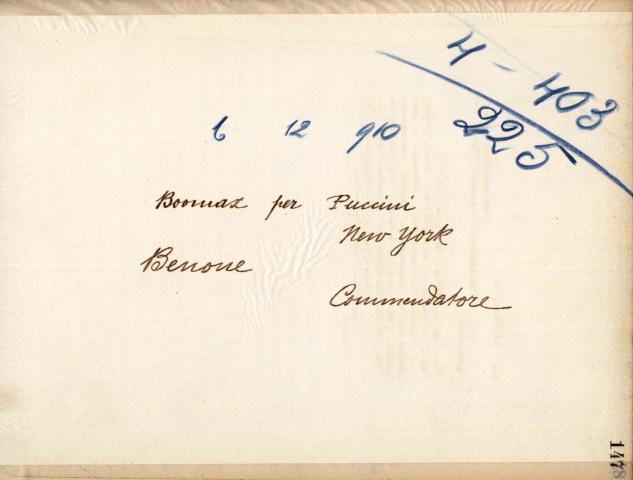 H - 403
225
6 12 910
Boomax per Puccini
New York
Benone
Commendatore
1478